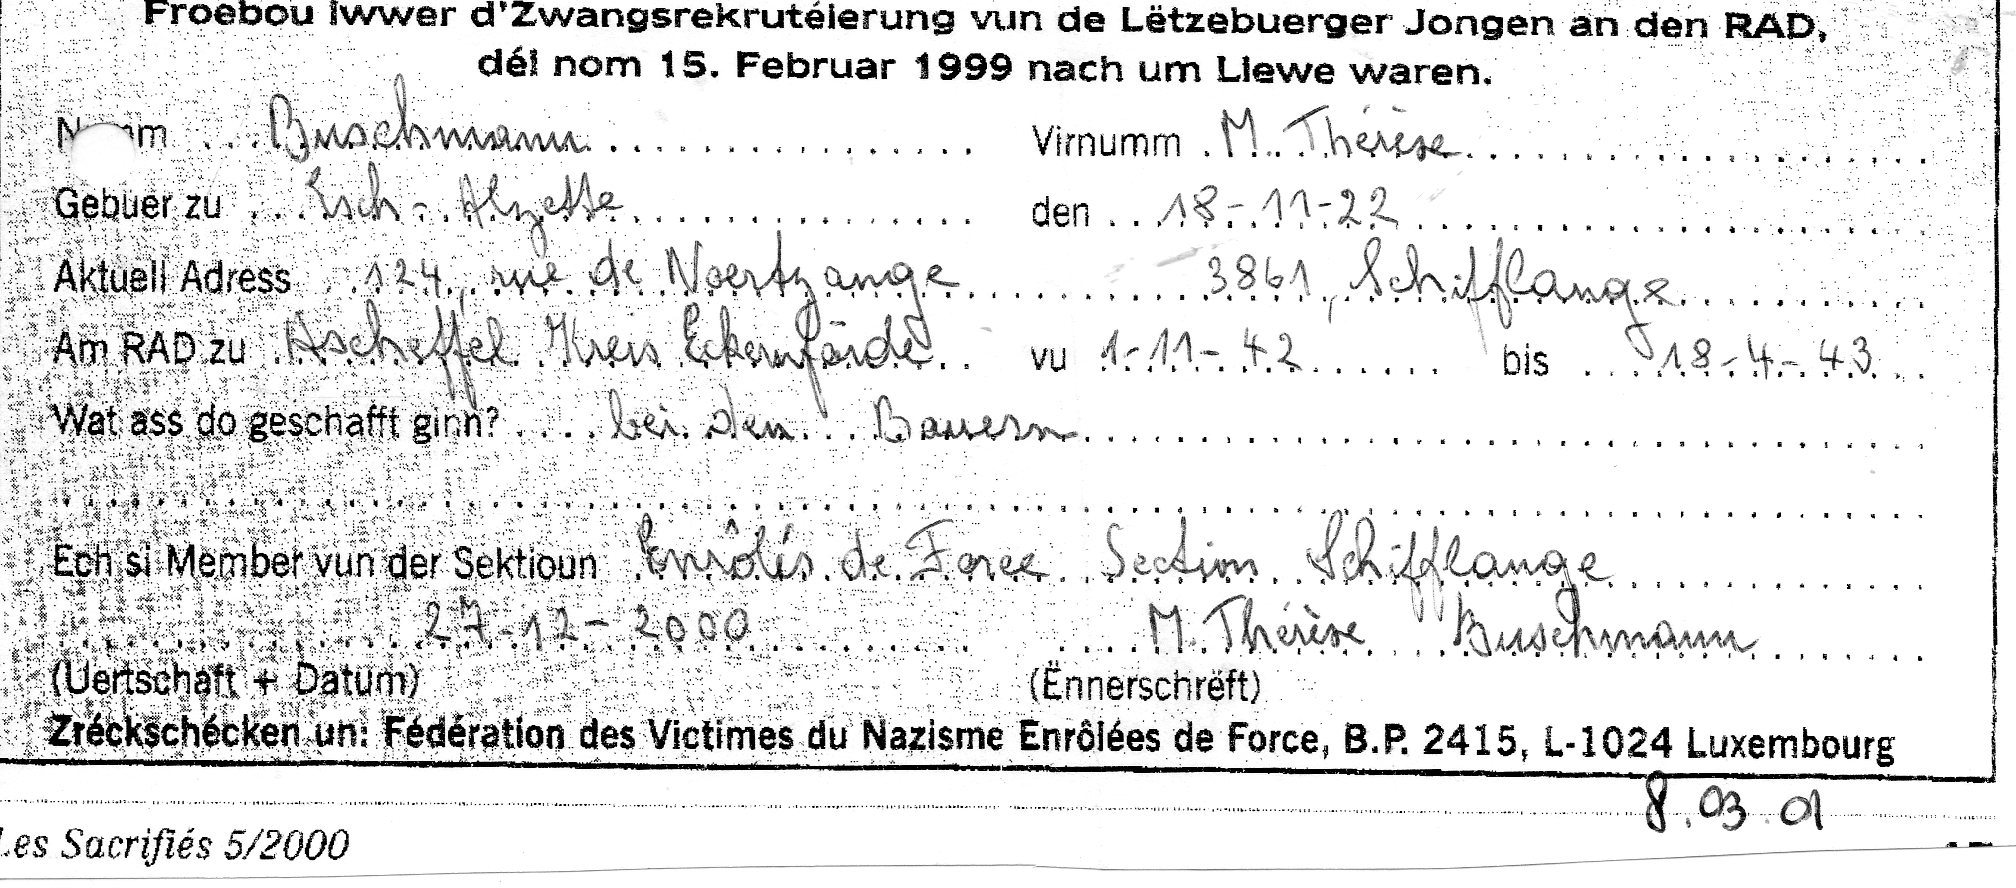 Froebou iwwer d'Zwangsrekrutéierung vun de Lëtzebuerger Jongen an den RAD,
déi nom 15. Februar 1999 nach um Liewe waren.
Numm ... Buschmann ... Virnumm . M. Thérèse
Gebuer zu ... Esch-Alzette ... den ... 18-11-22
Aktuell Adress ... 124, rue de Noertzange ... 3861, Schifflange
Am RAD zu ... Ascheffel Kreis Eckernförde .. vu 1-11-42 ... bis ... 18-4-43
Wat ass do geschafft ginn? .... bei den Bauern
Ech si Member vun der Sektioun Enrôlés de Force Section Schifflange
27-12-2000 M. Thérèse Buschmann
(Uertschaft + Datum) (Ënnerschrëft)
Zréckschécken un: Fédération des Victimes du Nazisme Enrôlées de Force, B.P. 2415, L-1024 Luxembourg
8.03.01
Les Sacrifiés 5/2000